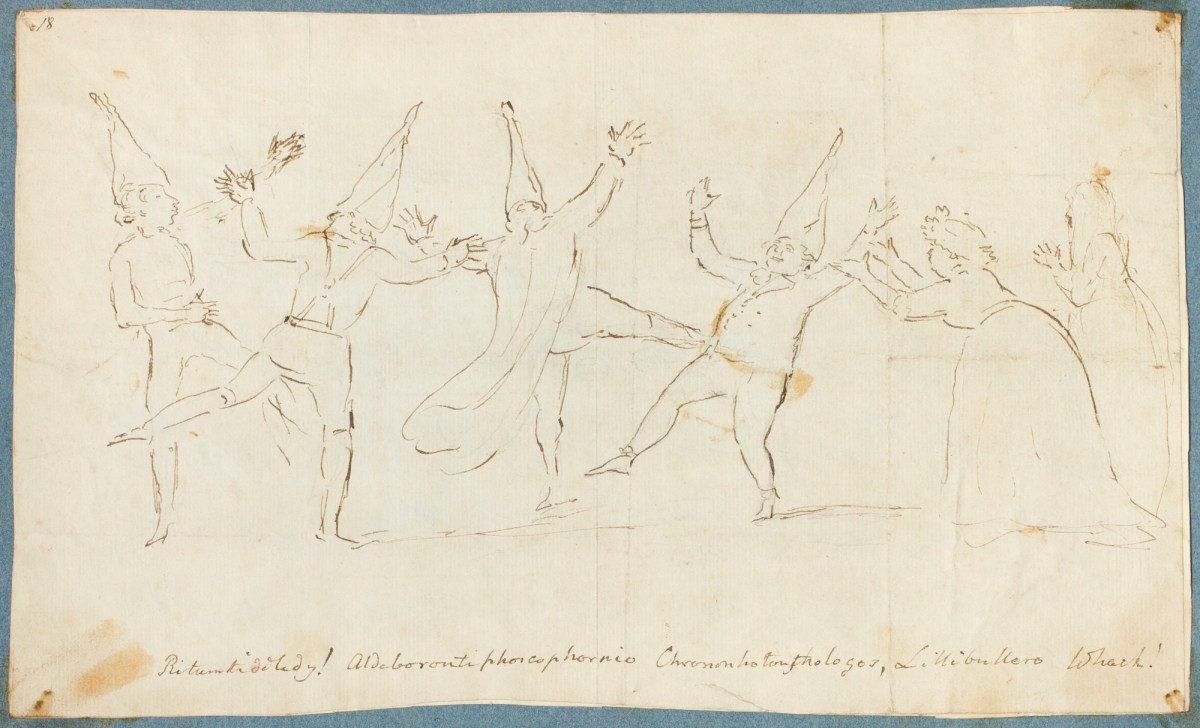 18
Ritumtidēledy! Aldeborontiphoscophornio Chrononhotonthologos, Lillibullero Whack!